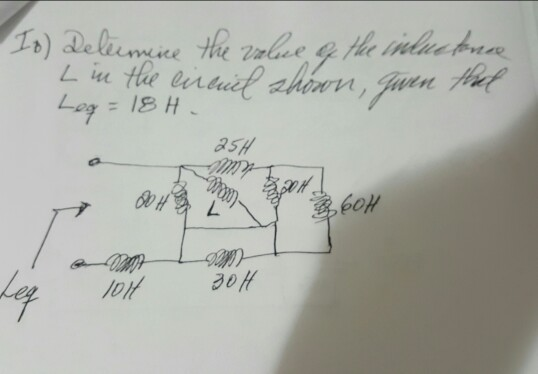 I0) Determine the value of the inductance
L in the circuit shown, given that
Leq = 18 H.
25H
20H
L
60H
10H
30H
Leq